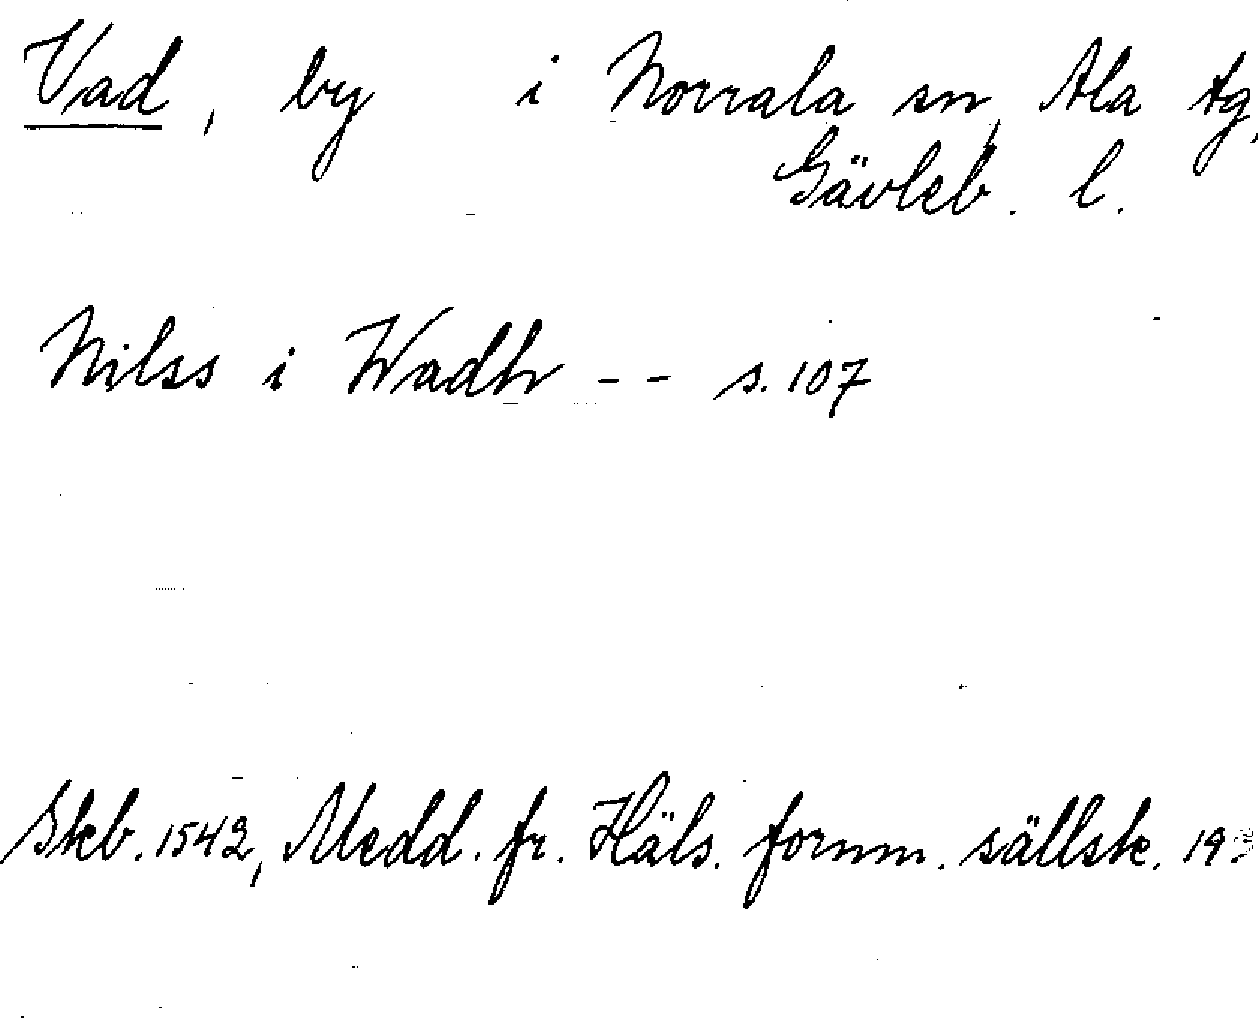 Vad, by i Norrala sn, Ala tg,
Gävleb. l.
Nilss i Wadh -- s. 107
Skb. 1542, Medd. fr. Häls. fornm. sällsk. 19